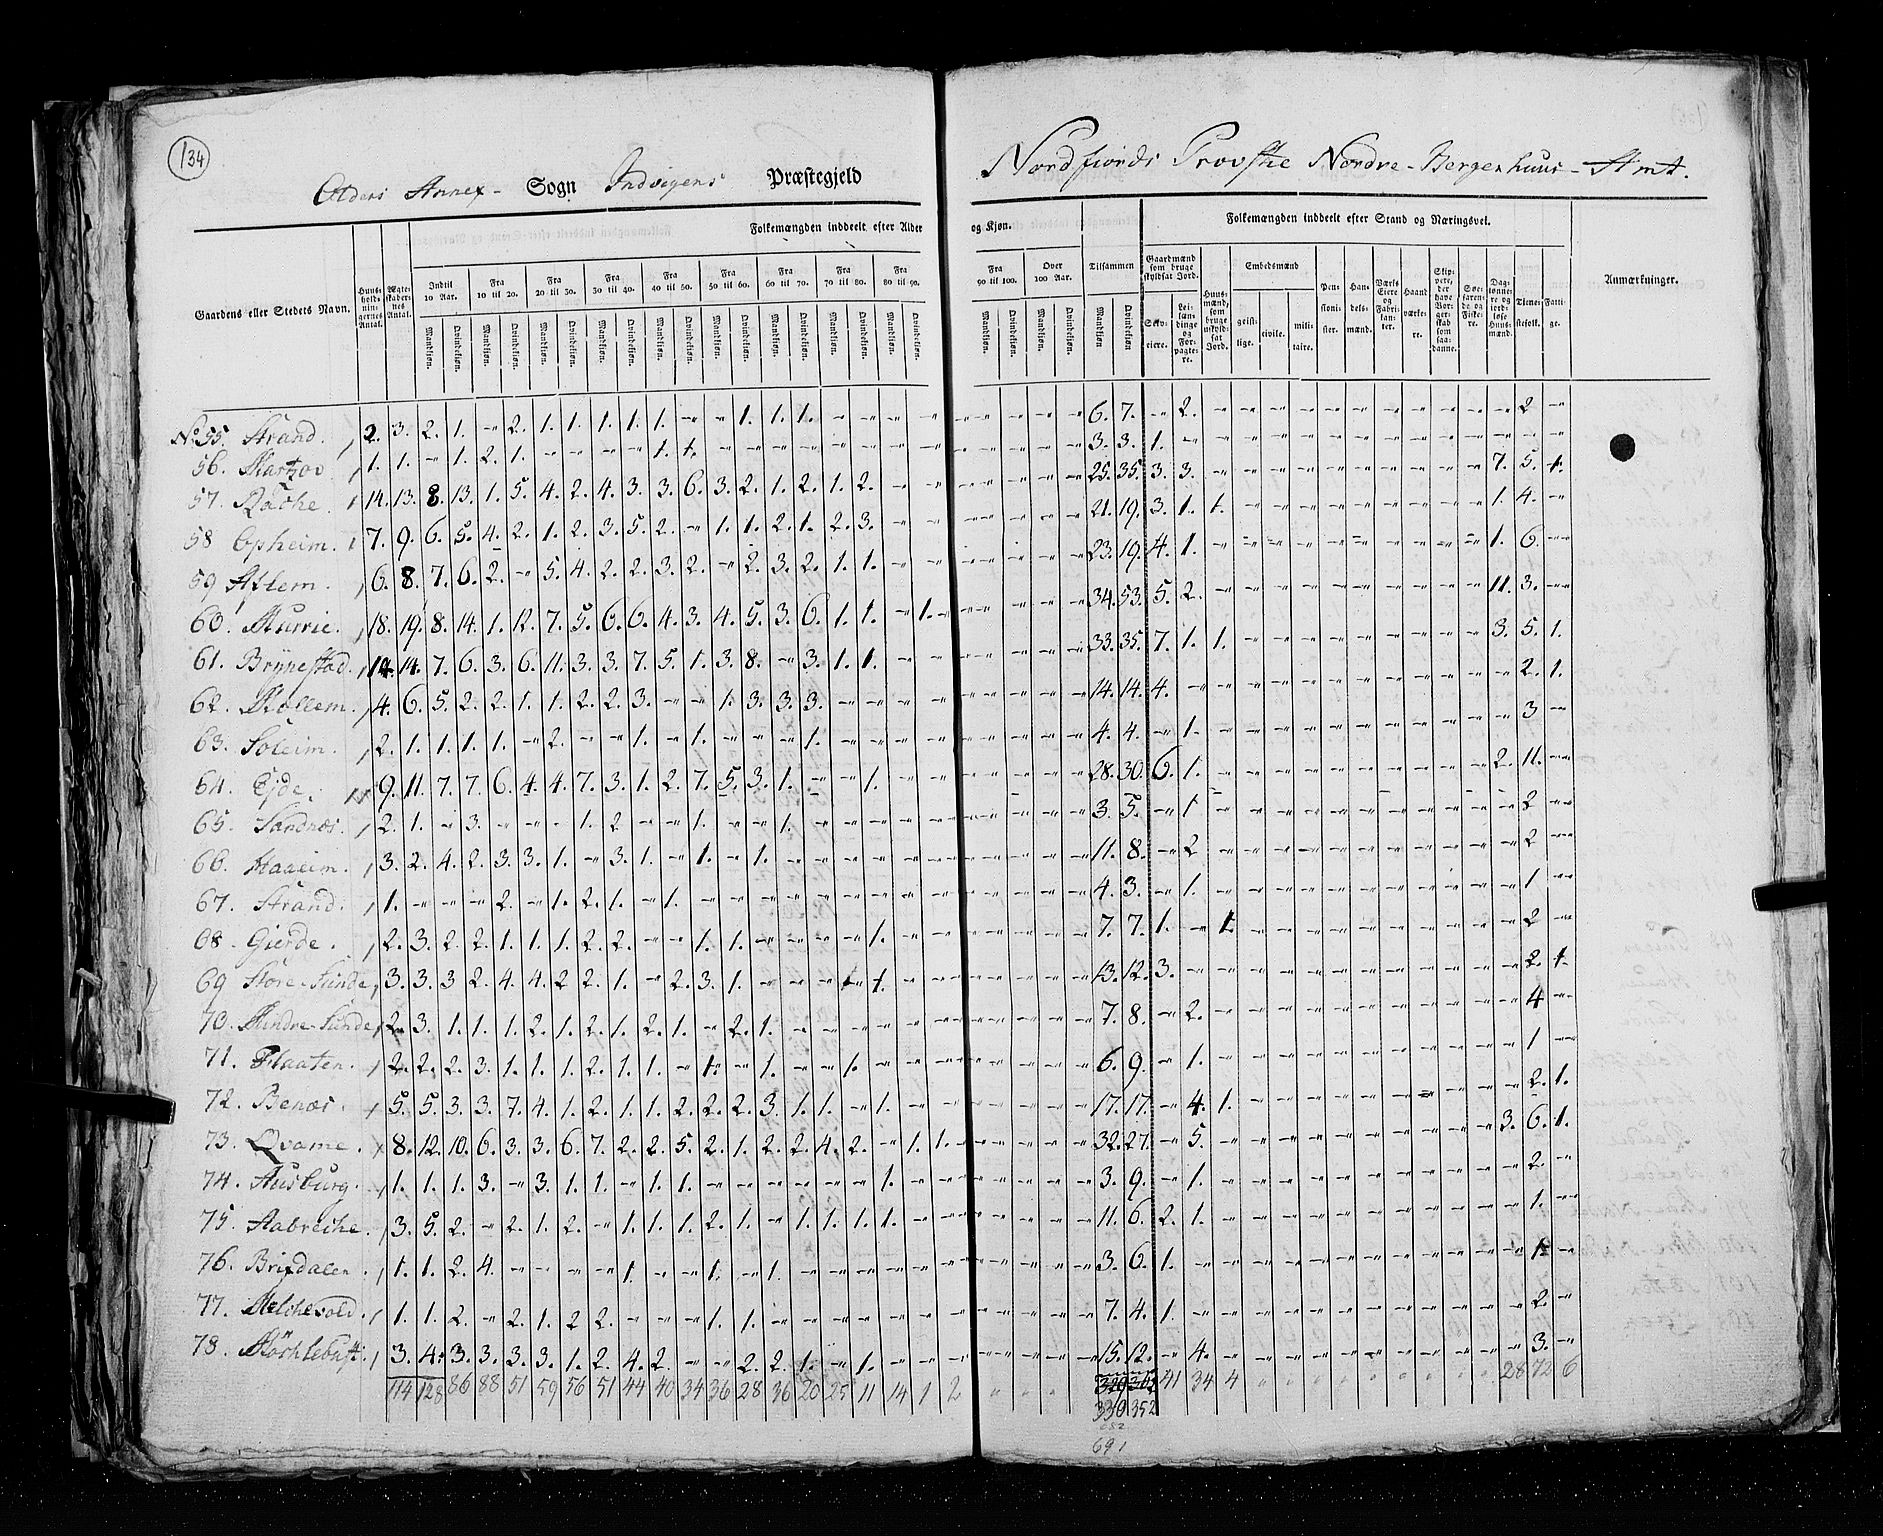 134
Olders Annex- Sogn Indvigens Præstegjeld
Nordfiords Provstie Nordre-Bergenhuus-Amt.
Folkemængden inddeelt efter Alder og Kjøn.
Folkemængden inddeelt efter Stand og Næringsvei.
Gaardens eller Stedets Navn.
Huusholdningernes Antal.
Ægteskabernes Antal.
Indtil 10 Aar.
Fra 10 til 20.
Fra 20 til 30.
Fra 30 til 40.
Fra 40 til 50.
Fra 50 til 60.
Fra 60 til 70.
Fra 70 til 80.
Fra 80 til 90.
Fra 90 til 100.
Over 100 Aar.
Tilsammen
Mandkjøn. Qvindekjøn.
Gaardmænd som bruge skyldsat Jord.
Selveiere.
Leilændinge og Forpagtere.
Huusmænd, som bruge uskyldsat Jord.
Embedsmænd
geistlige. civile. militaire.
Pensionister.
Handelsmænd.
Værks Eiere og Fabrikanter.
Haandværkere.
Skippere, der have Borgerskab som saadanne.
Søefarende og Fiskere.
Daglønnere og jordløse Huusmænd.
Tjenestefolk.
Fattige.
Anmærkninger.
No. 55. Strand. 2. 3. 2. 1. - 2. 1. 1. 1. 1. 1. - - 1. 1. 1. - - - - - - - - 6. 7. - 2. 2
56. 1. 1. - 1. 2. 1. - - - - 1. 1. 3. 3. 1.
57. 14. 13. 8. 13. 1. 5. 4. 2. 4. 3. 3. 6. 3. 2. 1. 2. 1. 2. 25. 35. 3. 3. 7. 5. 1.
58 Opheim. 7. 9. 6. 5. 4. 2. 1. 2. 3. 5. 2. - 1. 1. 2. 1. 2. 3. 21. 19. 3. 1. 1. 1. 4.
59 Aflem. 6. 8. 7. 6. 2. - 5. 4. 2. 2. 3. 2. - 2. 3. 2. 1. 1. 23. 19. 4. 1. 1. 6.
60. 18. 19. 8. 14. 1. 12. 7. 5. 6. 6. 4. 3. 4. 5. 3. 6. 1. 1. - 1. 34. 53. 5. 2. 11. 3.
61. Brynestad. 14. 14. 7. 6. 3. 6. 11. 3. 3. 7. 5. 1. 3. 8. - 3. 1. 1. 33. 35. 7. 1. 1. 3. 5. 1.
62. 4. 6. 5. 2. 2. 1. 1. 2. 2. 3. - - 1. 3. 3. 3. 14. 14. 4. 2. 1.
63. Soleim. 2. 1. 1. 1. 1. - 2. - - 1. - 1. - - - 1. 4. 4. - 1. 3
64. Eyde. 9. 11. 7. 7. 6. 4. 4. 7. 3. 1. 2. 7. 5. 3. 1. - - 1. 28. 30. 6. 1. 2. 11.
65. Sandnæs. 2. 1. - 3. - - - 1. 2 - - 1. - - 1. 3. 5. - 1. 2
66. Haaeim. 3. 2. 4. 2. 3. 3. 1. - 3. 1. - 1. - 1. 11. 8. - 2 2
67. Strand. 1. - - - 2. - 1. 2. 1. - 1. 4. 3. - 1. 1
68. Gierde. 2. 3. 2. 2. 1. 1. 1. 2. 2. - - 1. 1. - - - - 1. 7. 7. 1. - 1. 2
69 Store-Sunde 3. 3. 3 2. 4. 4. 2 2. 1. - 2. 3. 1. - - - 1. 1. 13. 12. 3. 2. 1.
70. Mindre-Sunde 2. 3. 1. 1. 1. 2. 1. 2. 1. 2. 1. - 2. 1. 7. 8. - 2. 4
71. Flaaten. 2. 2. 2. 3. 1. 1. 1. 2. 1. 1. - 1. - 1. - - 1. 6. 9. - 1. 1
72. Benæs. 5. 5. 3. 3. 7. 4. 1. 2. 1. 1. 2. 2. 2. 3. 1. 1. - 1. 17. 17. - 4. 1. 2. 1.
73. Qvame. 8. 12. 10. 6. 3. 3. 6. 7. 2. 2. 5. 2. 1. 2. 2. 4. 2. - 1. 1. 32. 27. - 5. 3. 6. 1.
74. Ausburg. 1. 1. 1. 3. - 3. 1. 1. - 1. 1. - - - - - - 1. 3. 9. - 1. 2.
75. Aabreche. 3. 5. 2. - 2. 1. 2. - 1. 1. 1. 2. 1. - 1. 1. 1. 1. 11. 6. 2. 1. 1.
76. Brixdalen. 1. 1. 2. 4. - - - - 1. - - 1. - 1. 3. 6. 1. 1.
77. Melchevold. 1. 1. 2. - 2. 1. 2 2. - - - 1. 1. 7. 4. 1. 2.
78. 3. 4. 3. 3. 3. 3. 1. 2. 4. 2. - - 2. 2. 1. - 1. 15. 12. - 4. 3.
114 128 86 88 51 59 56 51 44 40 34 36 28 36 20 25 11 14 1 2 41 34 4 28 72 6
330 352
682
691